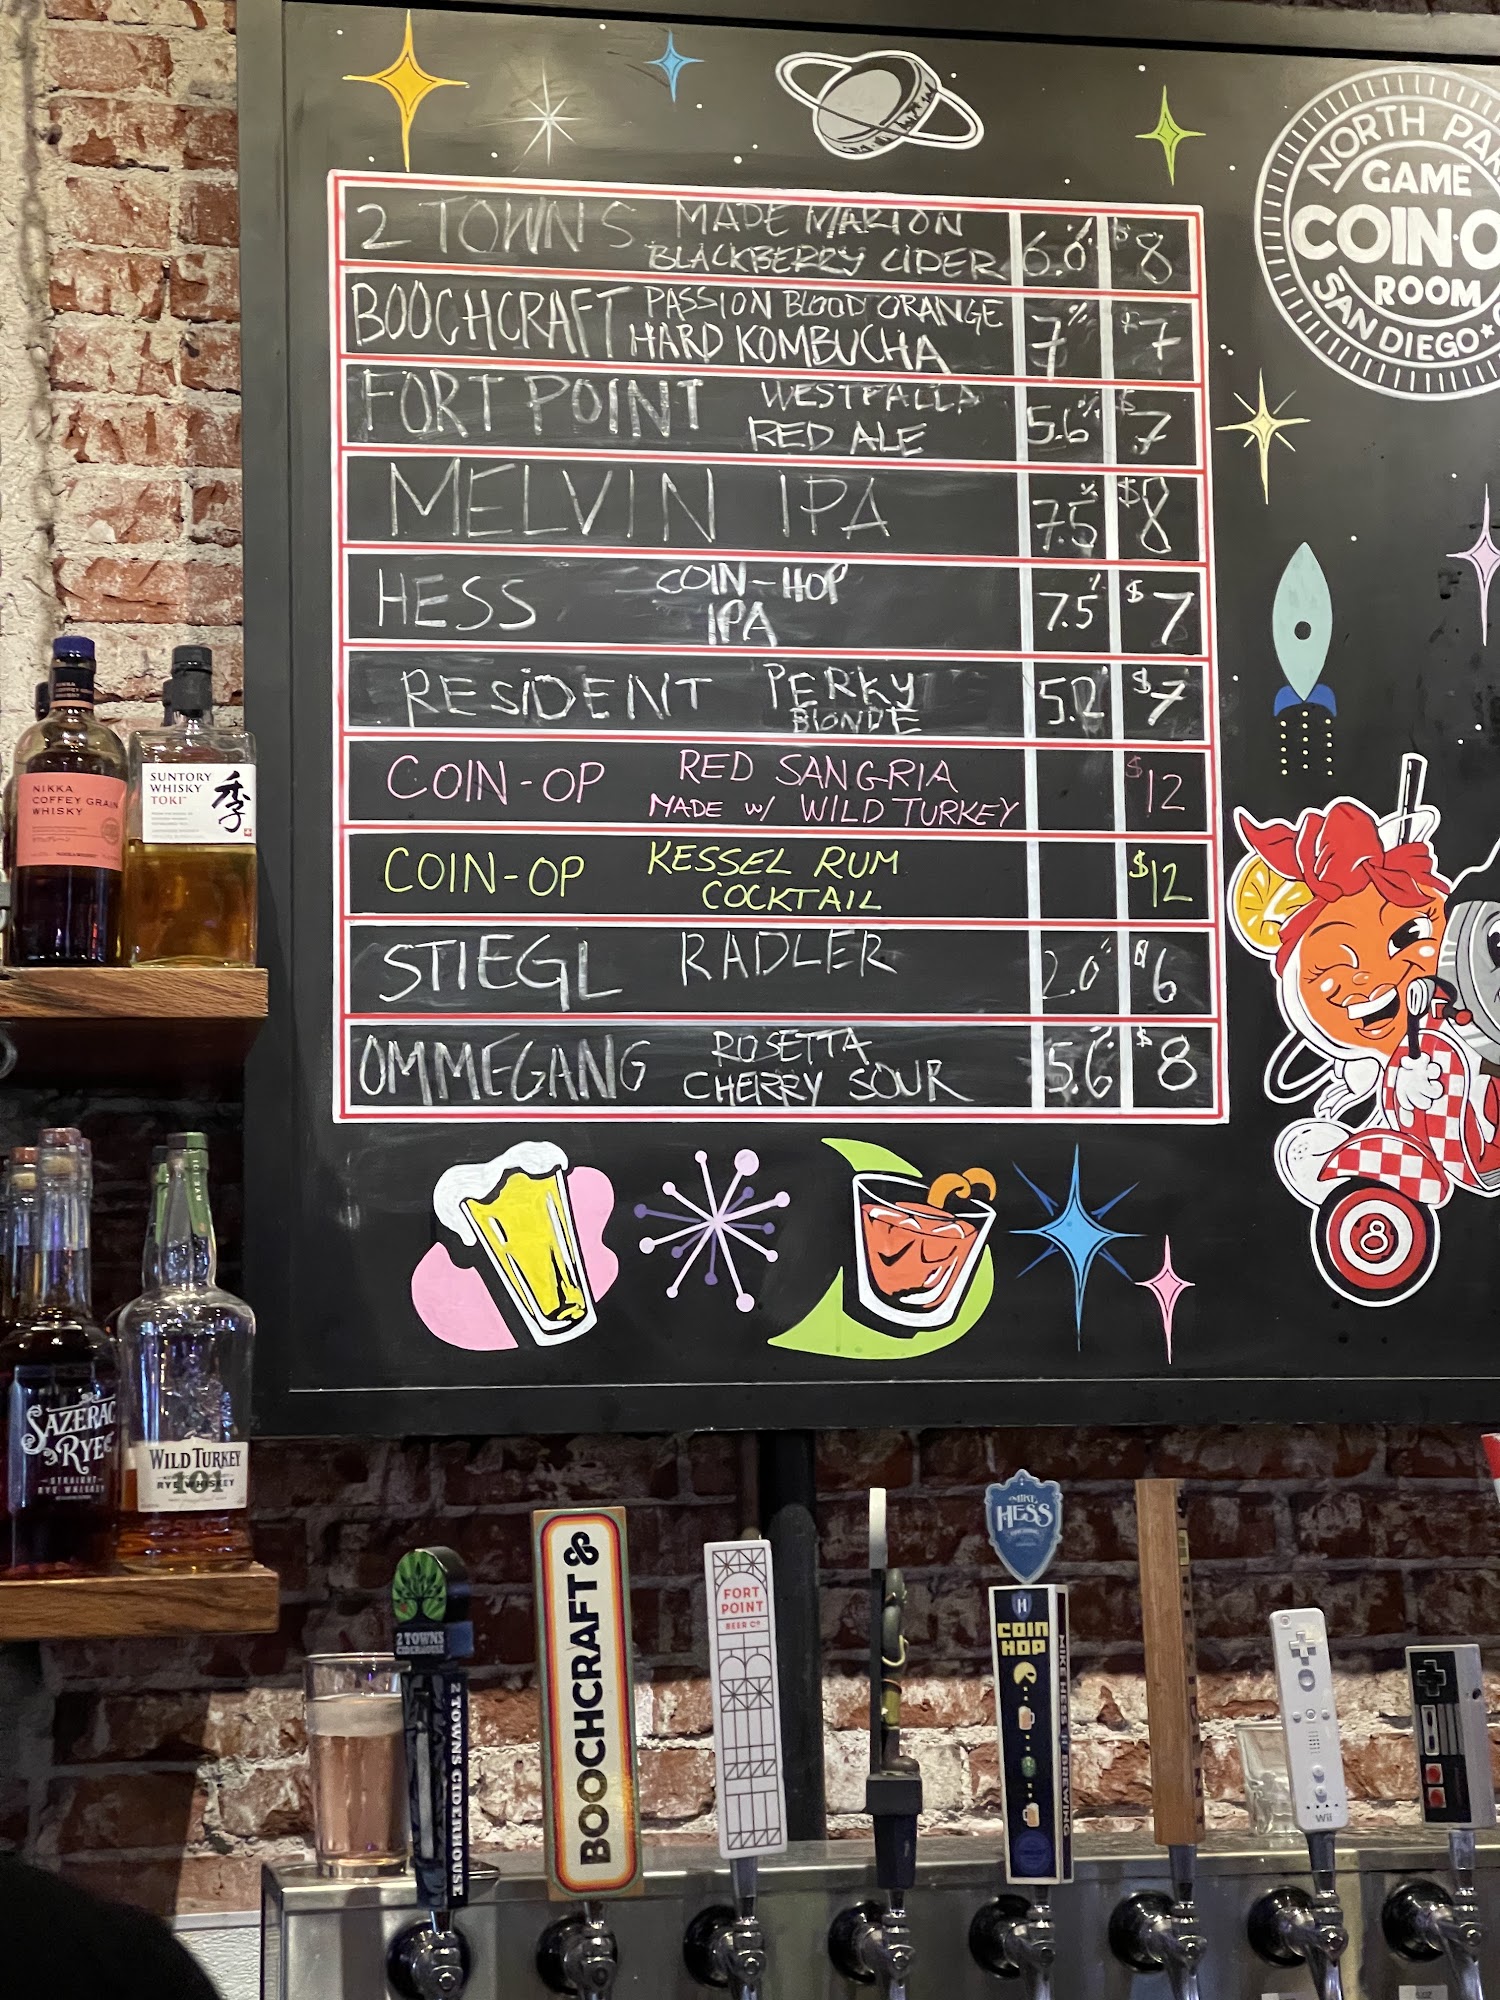 NORTH PAR
GAME
COIN·O
ROOM
SAN DIEGO
2 TOWNS MADE MARION
BLACKBERRY CIDER 6.0% $8
BOOCHCRAFT PASSION BLOOD ORANGE
HARD KOMBUCHA 7% $7
FORT POINT WESTFALLIA
RED ALE 5.6% $7
MELVIN IPA 7.5% $8
HESS COIN-HOP
IPA 7.5% $7
RESIDENT PERKY
BLONDE 5.2% $7
COIN-OP RED SANGRIA
MADE W/ WILD TURKEY $12
COIN-OP KESSEL RUM
COCKTAIL $12
STIEGL RADLER 2.0% $6
OMMEGANG ROSETTA
CHERRY SOUR 5.6% $8
8
NIKKA
COFFEY GRAIN
WHISKY
SUNTORY
WHISKY
TOKI
季
SAZERAC
RYE
STRAIGHT
RYE WHISKEY
WILD TURKEY
101
RYE WHISKEY
2 TOWNS
CIDERHOUSE
2 TOWNS CIDERHOUSE
BOOCHCRAFT
FORT
POINT
BEER CO
MIKE
HESS
H
COIN
HOP
MIKE HESS BREWING
Wii